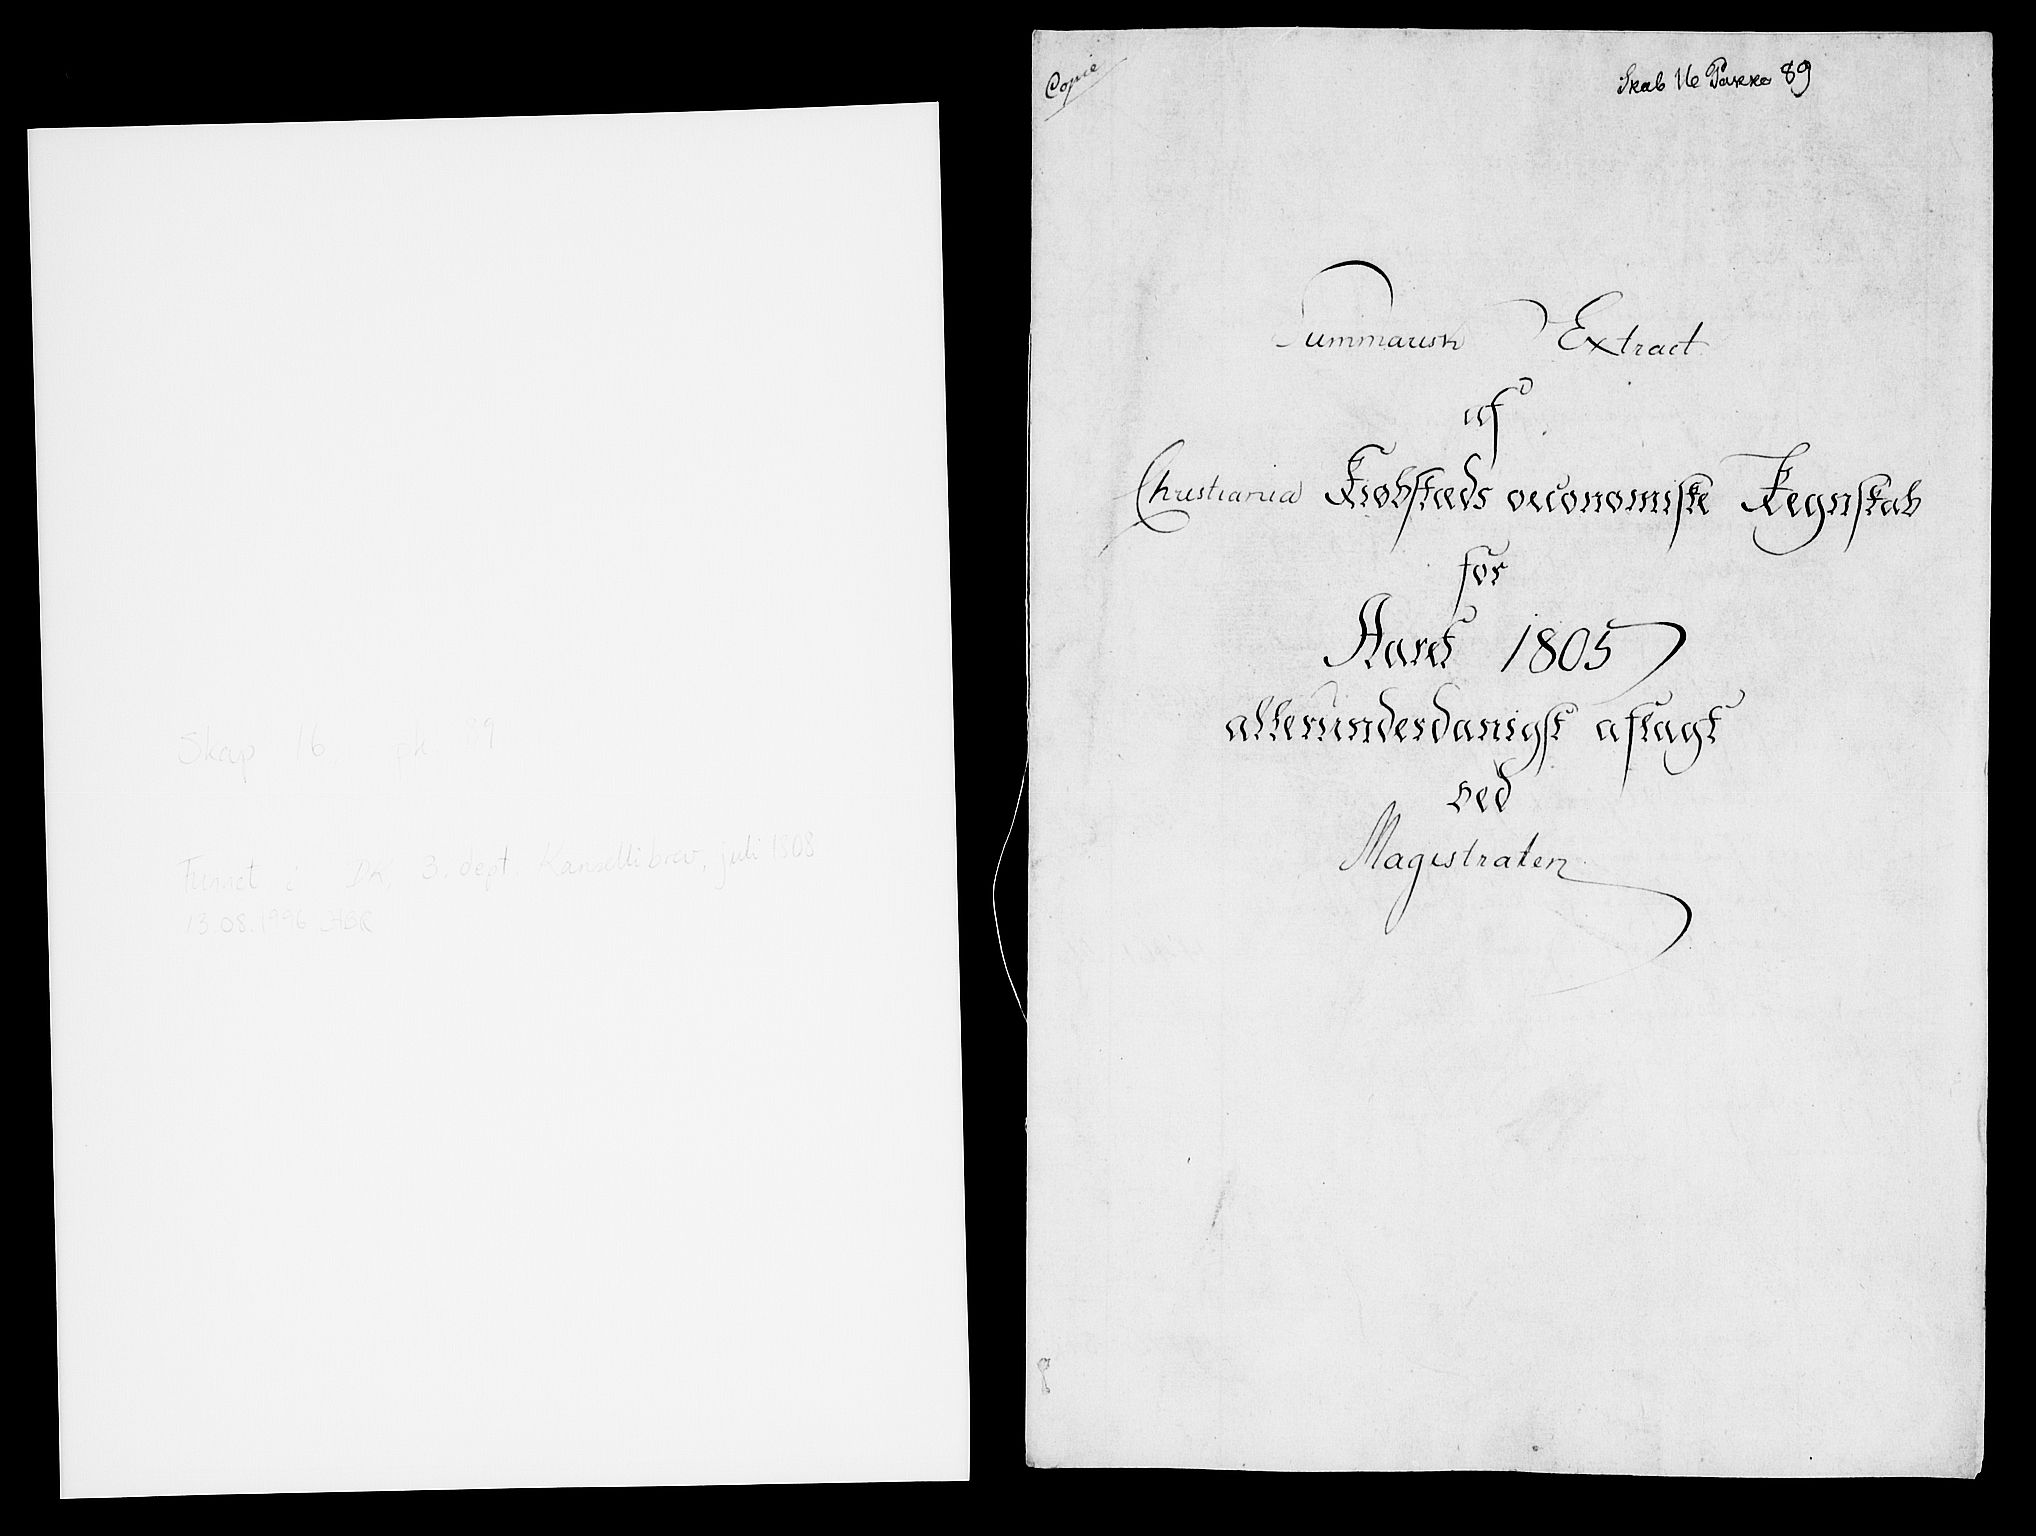 Skap 16 pk. 89
Funnet i DK, 3. dept. Kansellibrev, juli 1808
13.08.1996 ABR
Copie
Skab 16 Pakke 89
Summarisk Extract
af
Christiania Kiøbstæds oeconomiske Regnskab
for
Aaret 1805
allerunderdanigst aflagt
ved
Magistraten